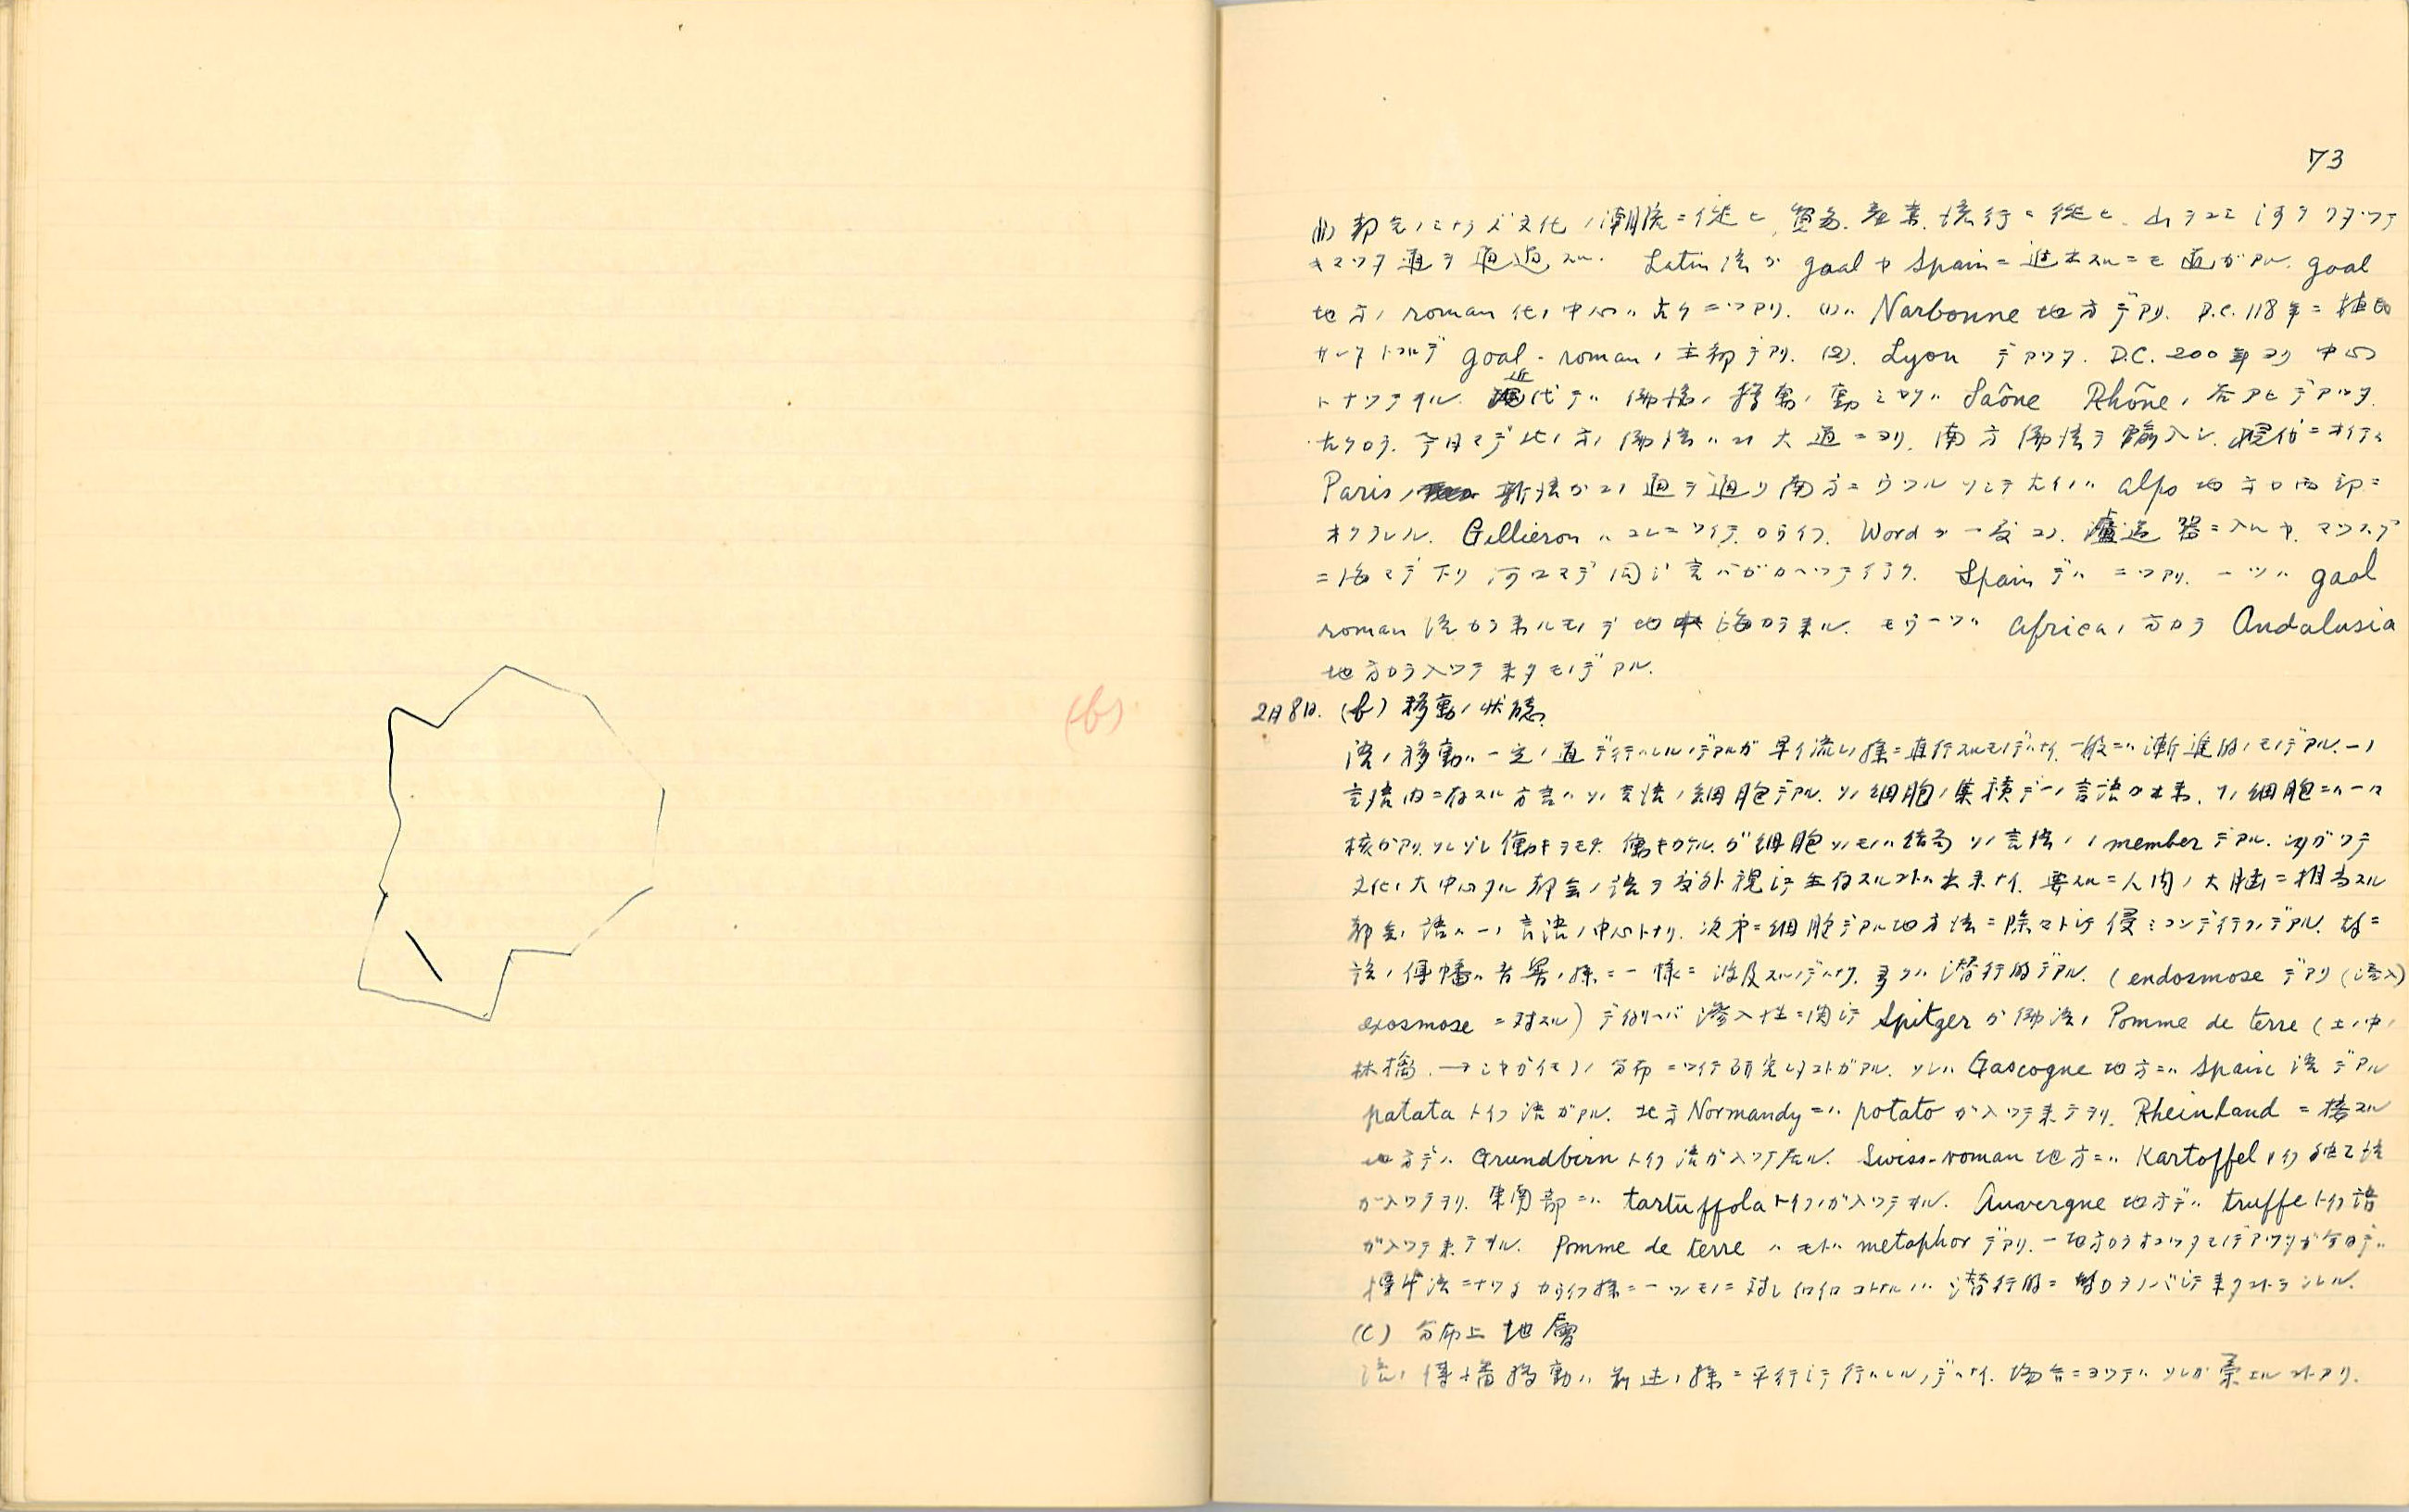 (b)
73
(ii) 都会ノミナラズ文化ノ潮流ニ従ヒ、貿易、産業、流行ニ従ヒ、山ヲコエ河ヲワタッテ
キマッタ道ヲ通過スル. Latin語ガ goal ヤ Spain ニ進出スルニモ道ガアル. goal
地方ノ roman 化ノ中心ハ古クニツアリ. (1)ハ Narbonne 地方デアリ. P.C. 118年ニ植民
goal-roman ノ主都デアリ. (2). Lyon デアッタ. D.C. 200年ヨリ中心
トナッテヰル. 近代デハ仏語ノ移動ノ Saône Rhône ノ谷アヒデアッタ.
古クカラ. 今日マデ北ノ方ノ仏語ハコノ大道ニヨリ. 南方仏語ヲ輸入シ. 現代ニオイテハ
Paris ノ新語ガコノ道ヲ通リ南方ニウツル alps 地方ノ西部ニ
オクラレル. Gilliéron ハコレニツイテカウイフ. Word ガ一度コノ濾過器ニ入ルヤ. マッスグ
ニ海マデ下リ河口マデ同ジ言バガカヘッテイラク. Spain デハニツアリ. 一ツハ gaal
roman 語カラ来ルモノデ地中海カラ来ル. モウ一ツハ Africa ノ方カラ Andalusia
地方カラ入ッテ来タモノデアル.
2月8日. (b) 移動ノ状態
語ノ移動ハ一定ノ道デ行ハレルノデアルガ早イ流レノ様ニ直行スルモノデハナイ. 一般ニハ漸進的ノモノデアル. 一ノ
言語内ニ存スル方言ハソノ言語ノ細胞デアル. ソノ細胞ノ集積デ一ノ言語ガ出来. ソノ細胞ニハ一ツ
核ガアリ. ソレゾレ働キヲモチ. 働キカケル. ガ細胞ソノモノハ結局ソノ言語ノ一 member デアル. 従ガッテ
文化ノ大中心タル都会ノ語ヲ度外視シテ生存スルコトハ出来ナイ. 要スルニ人間ノ大脳ニ相当スル
都会ノ語ハ一ノ言語ノ中心トナリ. 次第ニ細胞デアル地方語ニ除々トシテ侵ミコンデイクノデアル. 故ニ
語ノ傳幡ハ音響ノ様ニ一様ニ波及スルノデハナク. 多クハ潜行的デアル. (endosmose デアリ (浸入)
exosmose ニ対スル) デ例ヘバ滲入性ニ関シテ Spitzer ガ仏語ノ Pomme de terre (土ノ中ノ
林檎. → ジャガイモ) ノ分布ニツイテ研究シタコトガアル. ソレハ Gascogne 地方ニハ Spain 語デアル
patata トイフ語ガアル. 北方 Normandy ニハ potato ガ入ッテ来テヲリ. Rheinland ニ接スル
地方デハ Grundbirn トイフ語ガ入ッテ居ル. Swiss-roman 地方ニハ Kartoffel トイフ独乙語
ガ入ッテヲリ. 東南部ニハ tartuffola トイフノガ入ッテヰル. Auvergne 地方デハ truffe トイフ語
ガ入ッテ来テヰル. Pomme de terre ハモトハ metaphor デアリ. 一地方カラオコッタモノデアッタガ今日デハ
標準語ニナッタ. カウイフ様ニ一ツノモノニ対シイロイロコトナルノハ潜行的ニ勢力ヲノバシテ来タコトヲシレル.
(c) 分布上地層
語ノ傳播移動ハ前述ノ様ニ平行シテ行ハレルノデハナイ. 場合ニヨッテハソレガ衰エルコトアリ.